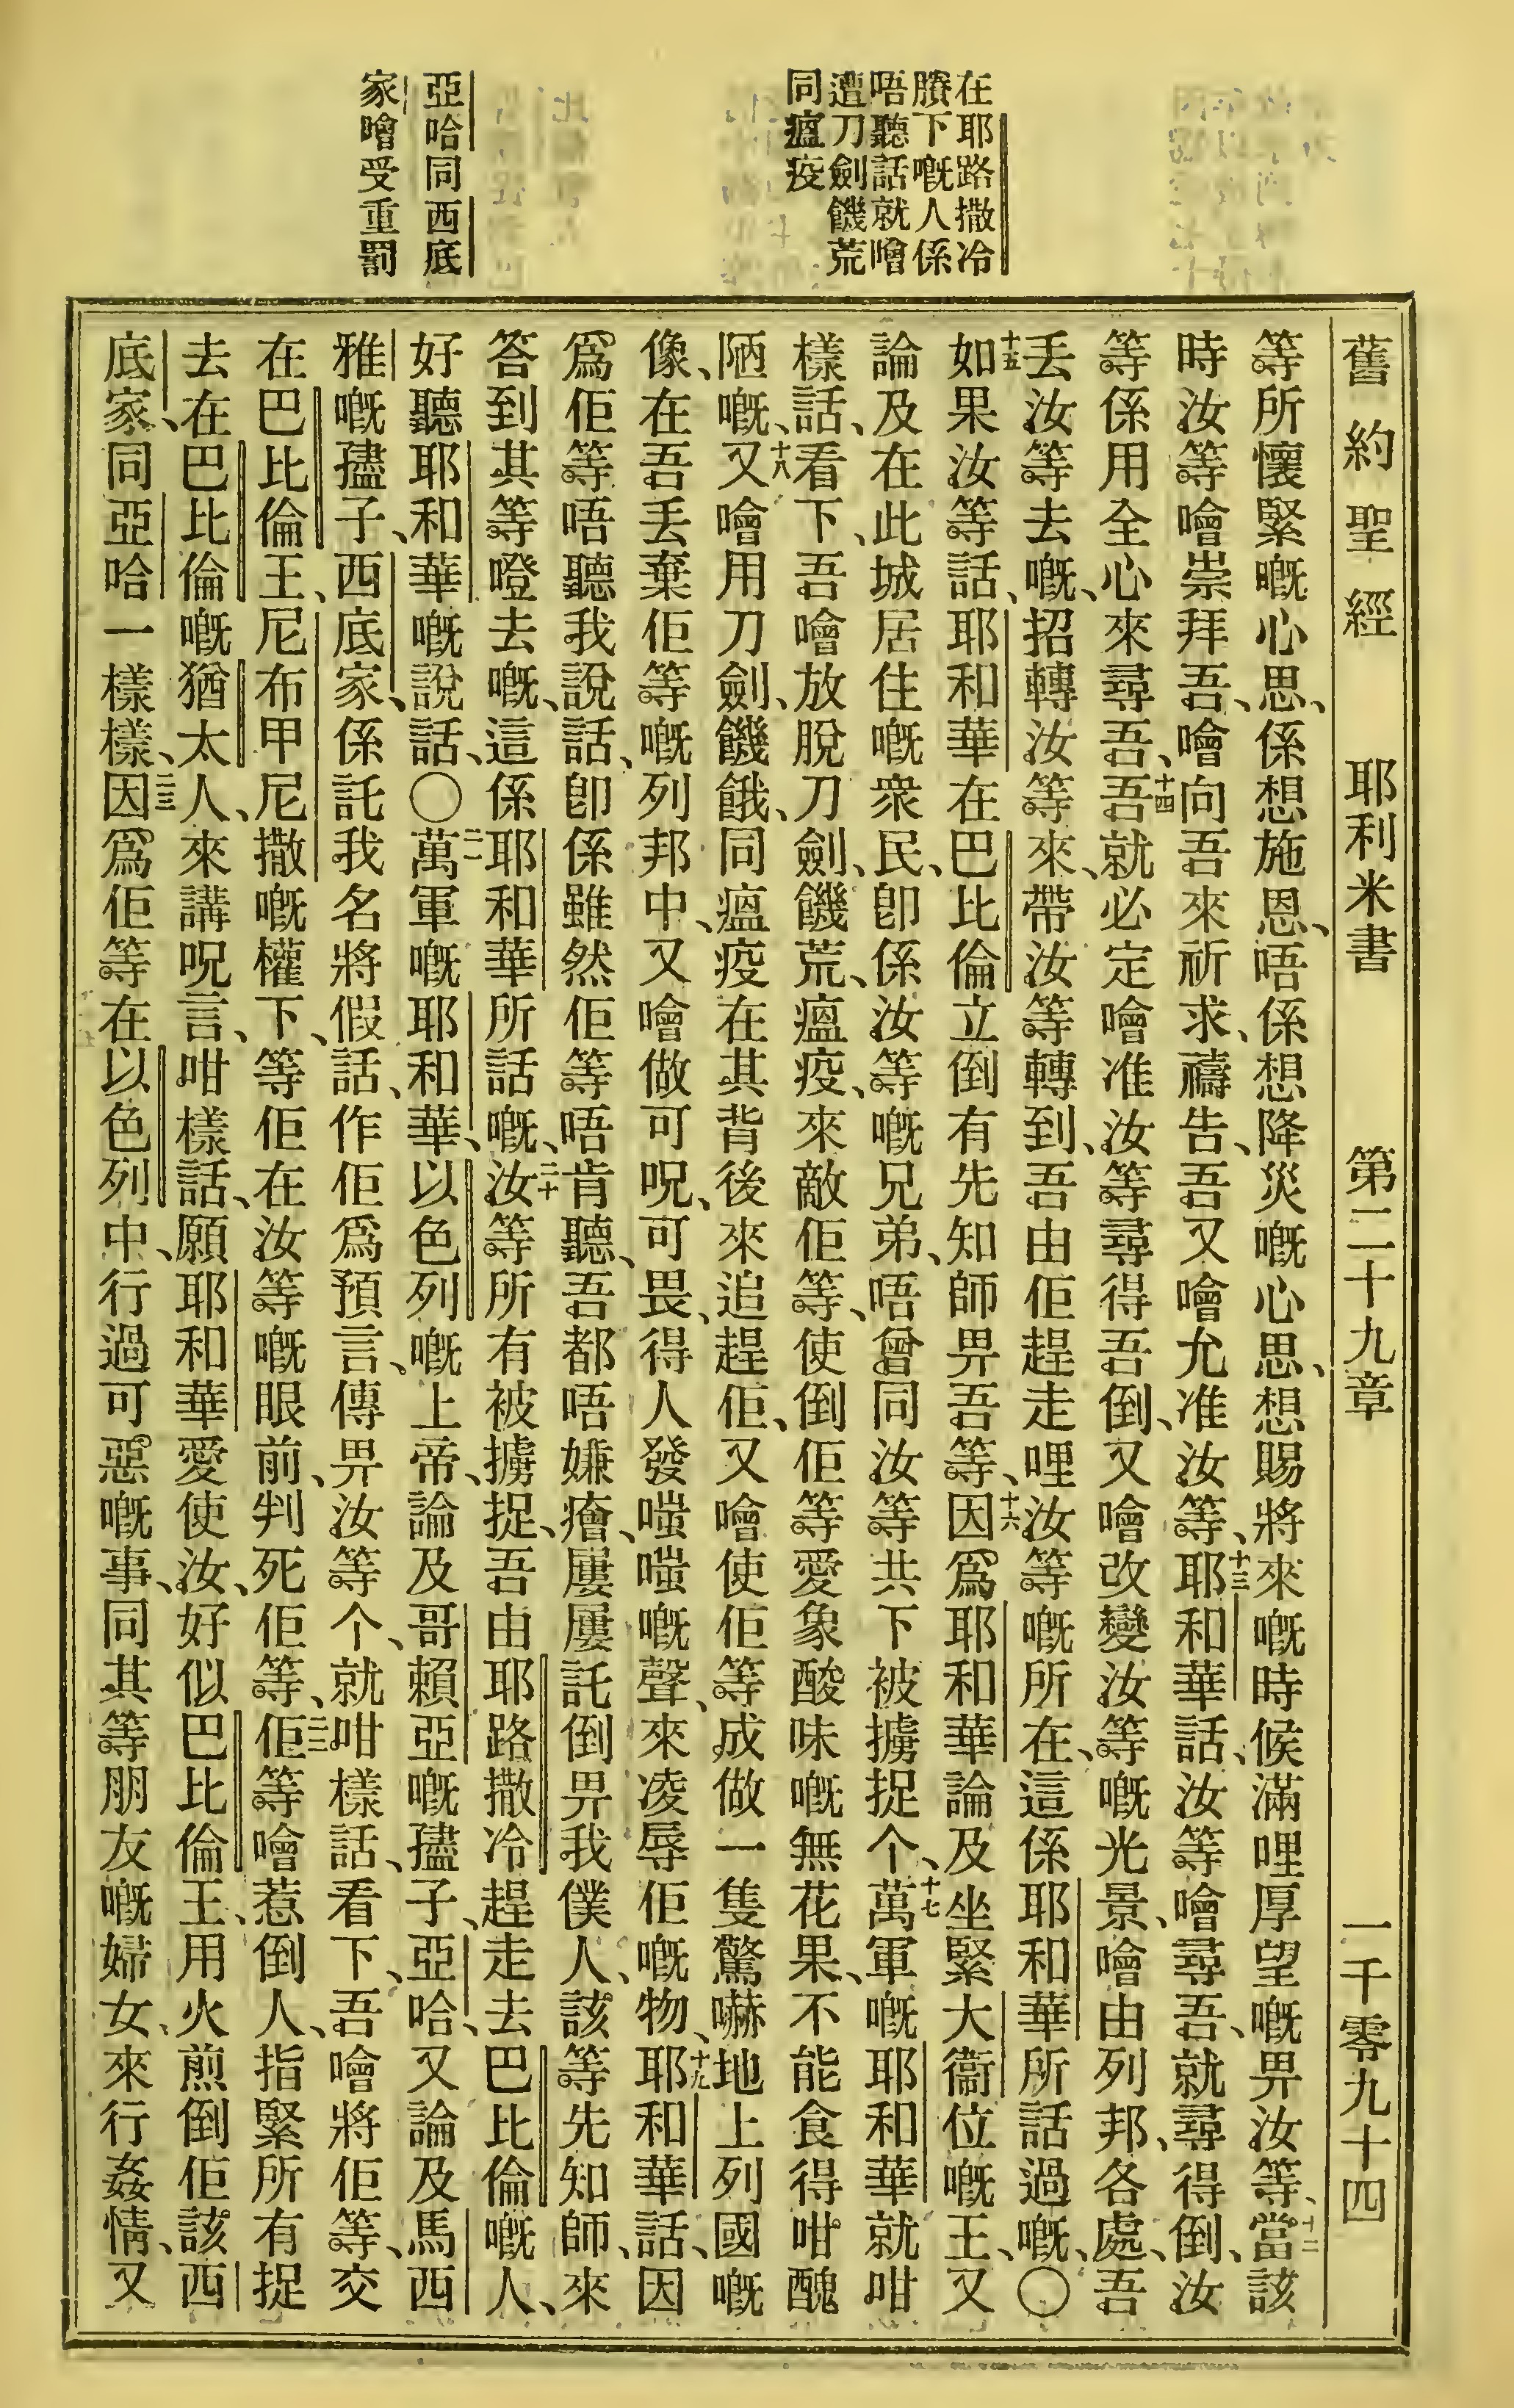 舊約聖經 耶利米書 第二十九章 一千零九十四
在耶路撒冷
賸下嘅人係
唔聽話就噲
遭刀劍饑荒
同瘟疫
亞哈同西底
家噲受重罰
等所懷緊嘅心思、係想施恩、唔係想降災嘅心思、想賜將來嘅時候滿哩厚望嘅畀汝等、十二當該
時汝等噲崇拜吾、噲向吾來祈求、禱告、吾又噲允准汝等、十三耶和華話、汝等噲尋吾、就尋得倒、汝
等係用全心來尋吾、十四吾就必定噲准汝等尋得吾倒、又噲改變汝等嘅光景、噲由列邦、各處、吾
丢汝等去嘅、招轉汝等來、帶汝等轉到、吾由佢趕走哩汝等嘅所在、這係耶和華所話過嘅、〇
十五如果汝等話、耶和華在巴比倫立倒有先知師畀吾等、十六因爲耶和華論及坐緊大衞位嘅王、又
論及在此城居住嘅衆民、卽係汝等嘅兄弟、唔曾同汝等共下被擄捉个、十七萬軍嘅耶和華就咁
樣話、看下、吾噲放脫刀劍、饑荒、瘟疫、來敵佢等、使倒佢等愛象酸味嘅無花果、不能食得咁醜
陋嘅、十八又噲用刀劍、饑餓、同瘟疫在其背後來追趕佢、又噲使佢等成做一隻驚嚇地上列國嘅
像、在吾丢棄佢等嘅列邦中、又噲做可呪、可畏、得人發嗤嗤嘅聲、來凌辱佢嘅物、十九耶和華話、因
爲佢等唔聽我說話、卽係雖然佢等唔肯聽、吾都唔嫌癐、屢屢託倒畀我僕人、該等先知師、來
答到其等嘅、這係耶和華所話嘅、二十汝等所有被擄捉、吾由耶路撒冷趕走去巴比倫嘅人、
好聽耶和華嘅說話、〇二一萬軍嘅耶和華、以色列嘅上帝、論及哥賴亞嘅孻子、亞哈、又論及馬西
雅嘅孻子、西底家、係託我名將假話、作佢爲預言、傳畀汝等个、就咁樣話、看下、吾噲將佢等、交
在巴比倫王、尼布甲尼撒嘅權下、等佢在汝等嘅眼前、判死佢等、二二佢等噲惹倒人、指緊所有捉
去在巴比倫嘅猶太人、來講呪言、咁樣話、願耶和華愛使汝、好似巴比倫王、用火煎倒佢該西
底家、同亞哈一樣樣、二三因爲佢等在以色列中、行過可惡嘅事、同其等朋友嘅婦女、來行姦情、又